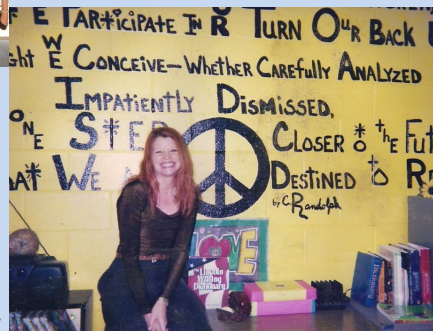 E PARTICIPATE IN R TURN OUR BACK
ght WE CONCEIVE—WHETHER CAREFULLY ANALYZED
IMPATIENTLY DISMISSED,
ONE STEP CLOSER to the FUT
AT WE A DESTINED to R
by C. Randolph
LOVE
The Lincoln Writing Dictionary
Dictionary